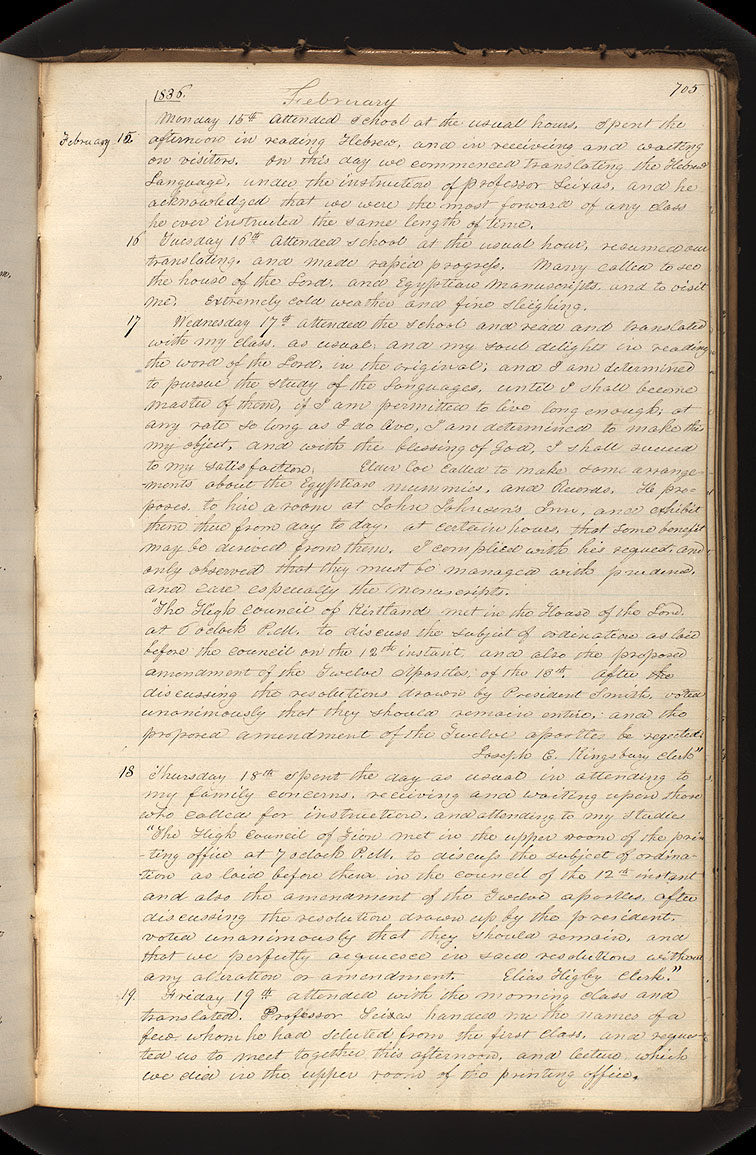 1836. February 705
February 15. Monday 15th attended school at the usual hours. Spent the
afternoon in reading Hebrew, and in receiving and waiting
on visitors. On this day we commenced translating the Hebrew
Language, under the instruction of professor Seixas, and he
acknowledged that we were the most forward of any class
he ever instructed the same length of time.
16 Tuesday 16th attended school at the usual hour, resumed our
translating, and made rapid progress. Many called to see
the house of the Lord, and Egyptian Manuscripts, and to visit
me. Extremely cold weather and fine sleighing.
17 Wednesday 17th attended the school and read and translated
with my class, as usual; and my soul delights in reading
the word of the Lord, in the original; and I am determined
to pursue the study of the Languages, until I shall become
master of them, if I am permitted to live long enough; at
any rate so long as I do live, I am determined to make this
my object, and with the blessing of God, I shall succeed
to my satisfaction. Elder Coe called to make some arrange-
ments about the Egyptian mummies, and Records. He pro-
poses to hire a room at John Johnson's Inn, and exhibit
them there from day to day, at certain hours, that some benefit
may be derived from them. I complied with his request, and
only observed that they must be managed with prudence,
and care especially the manuscripts.
"The High council of Kirtland met in the House of the Lord,
at 6 oclock P.M. to discuss the subject of ordination as laid
before the council on the 12th instant, and also the proposed
amendment of the Twelve Apostles; of the 13th. After the
discussing the resolutions drawn by President Smith, voted
unanimously that they should remain entire; and the
proposed amendment of the Twelve apostles be rejected.
Joseph C. Kingsbury clerk"
18 Thursday 18th Spent the day as usual in attending to
my family concerns, receiving and waiting upon those
who called for instruction, and attending to my studies
"The High council of Zion met in the upper room of the prin-
-ting office at 7 oclock P.M. to discuss the subject of ordina-
tion as laid before them in the council of the 12th instant
and also the amendment of the Twelve apostles, after
discussing the resolution drawn up by the president,
voted unanimously that they should remain, and
that we perfectly acquiesce in said resolutions without
any alteration or amendment. Elias Higby Clerk."
19. Friday 19th attended with the morning class and
translated. Professor Seixas handed me the names of a
few whom he had selected from the first class, and reques-
ted us to meet together this afternoon, and lecture, which
we did in the upper room of the printing office.